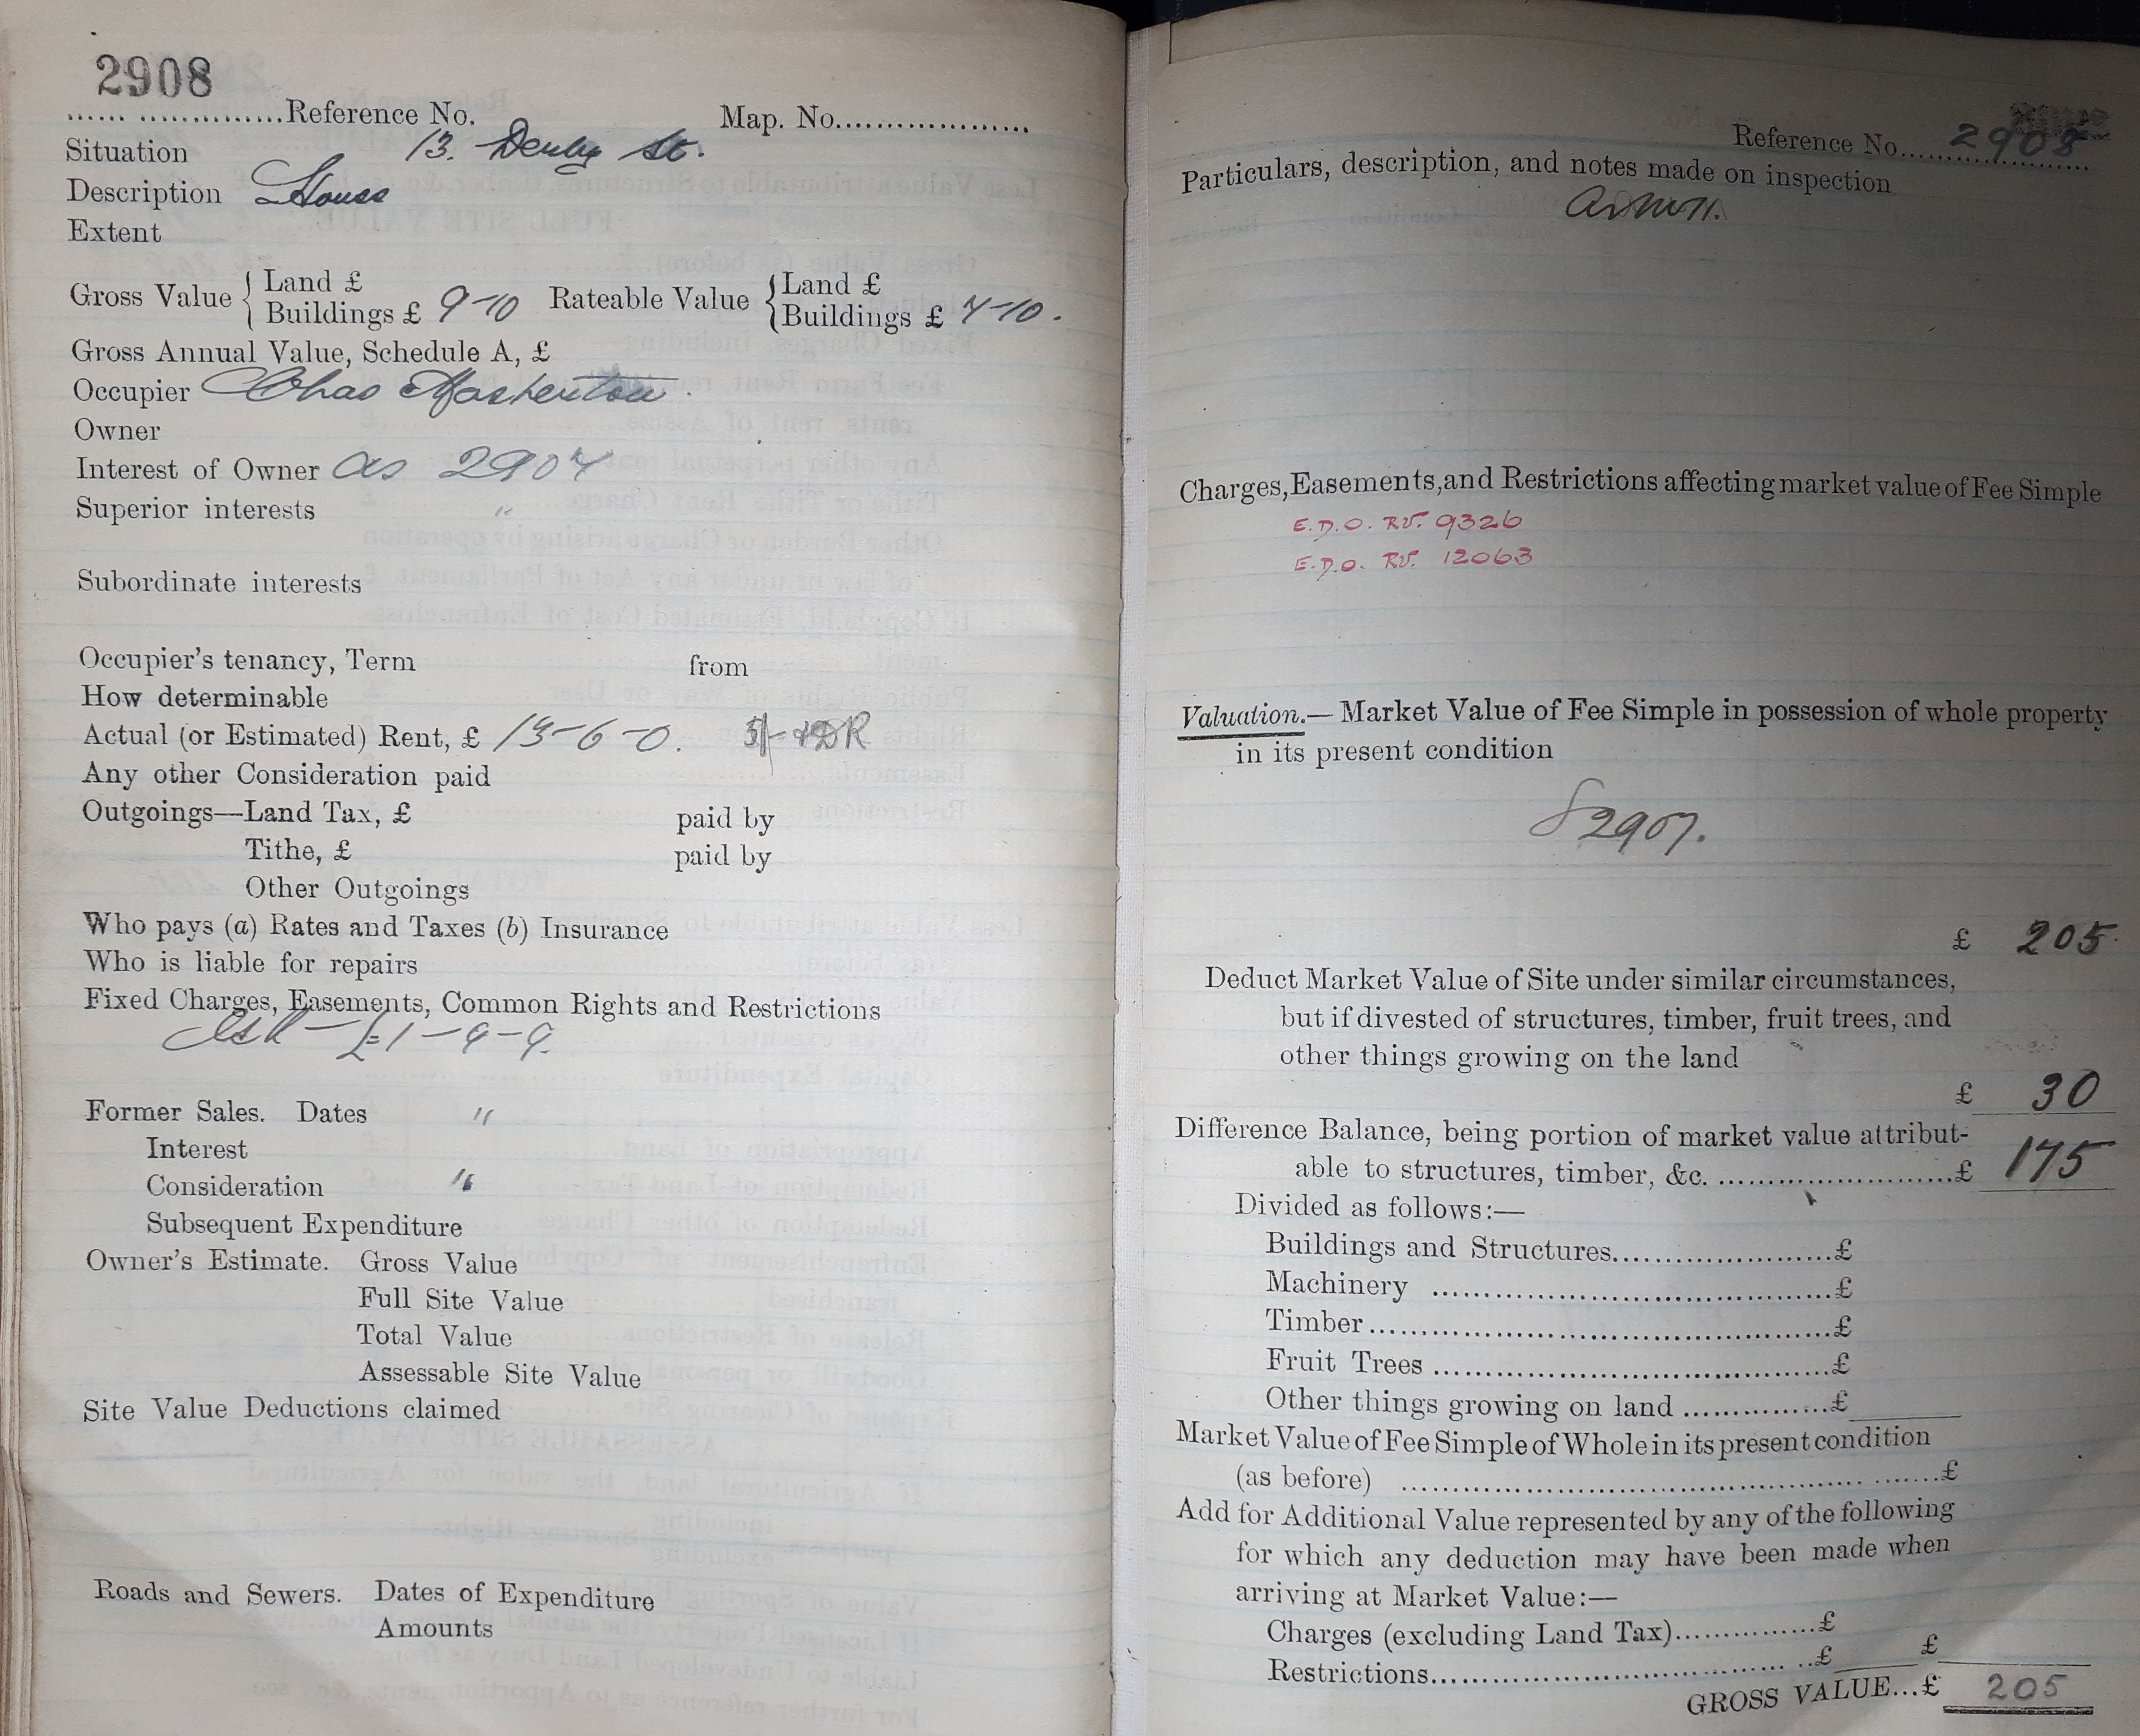 2908
...... ..............Reference No. Map. No....................
Situation 13. Denby St.
Description House
Extent
Gross Value { Land £ Rateable Value { Land £
Buildings £ 9-10 Buildings £ 7-10.
Gross Annual Value, Schedule A, £
Occupier Chas
Owner
Interest of Owner as 2907
Superior interests "
Subordinate interests
Occupier's tenancy, Term from
How determinable
Actual (or Estimated) Rent, £ 13-6-0. 5/- + DR
Any other Consideration paid
Outgoings—Land Tax, £ paid by
Tithe, £ paid by
Other Outgoings
Who pays (a) Rates and Taxes (b) Insurance
Who is liable for repairs
Fixed Charges, Easements, Common Rights and Restrictions
£1-9-9.
Former Sales. Dates "
Interest
Consideration "
Subsequent Expenditure
Owner's Estimate. Gross Value
Full Site Value
Total Value
Assessable Site Value
Site Value Deductions claimed
Roads and Sewers. Dates of Expenditure
Amounts
Reference No. 2908
Particulars, description, and notes made on inspection
Charges, Easements, and Restrictions affecting market value of Fee Simple
E.D.O. RV. 9326
E.D.O. RV. 12063
Valuation.— Market Value of Fee Simple in possession of whole property
in its present condition
2907.
£ 205
Deduct Market Value of Site under similar circumstances,
but if divested of structures, timber, fruit trees, and
other things growing on the land
£ 30
Difference Balance, being portion of market value attribut-
able to structures, timber, &c. ..........................£ 175
Divided as follows:—
Buildings and Structures......................£
Machinery ........................................£
Timber..............................................£
Fruit Trees ........................................£
Other things growing on land ...............£
Market Value of Fee Simple of Whole in its present condition
(as before) ......................................................£
Add for Additional Value represented by any of the following
for which any deduction may have been made when
arriving at Market Value:—
Charges (excluding Land Tax)...............£
Restrictions......................................£ £
GROSS VALUE...£ 205